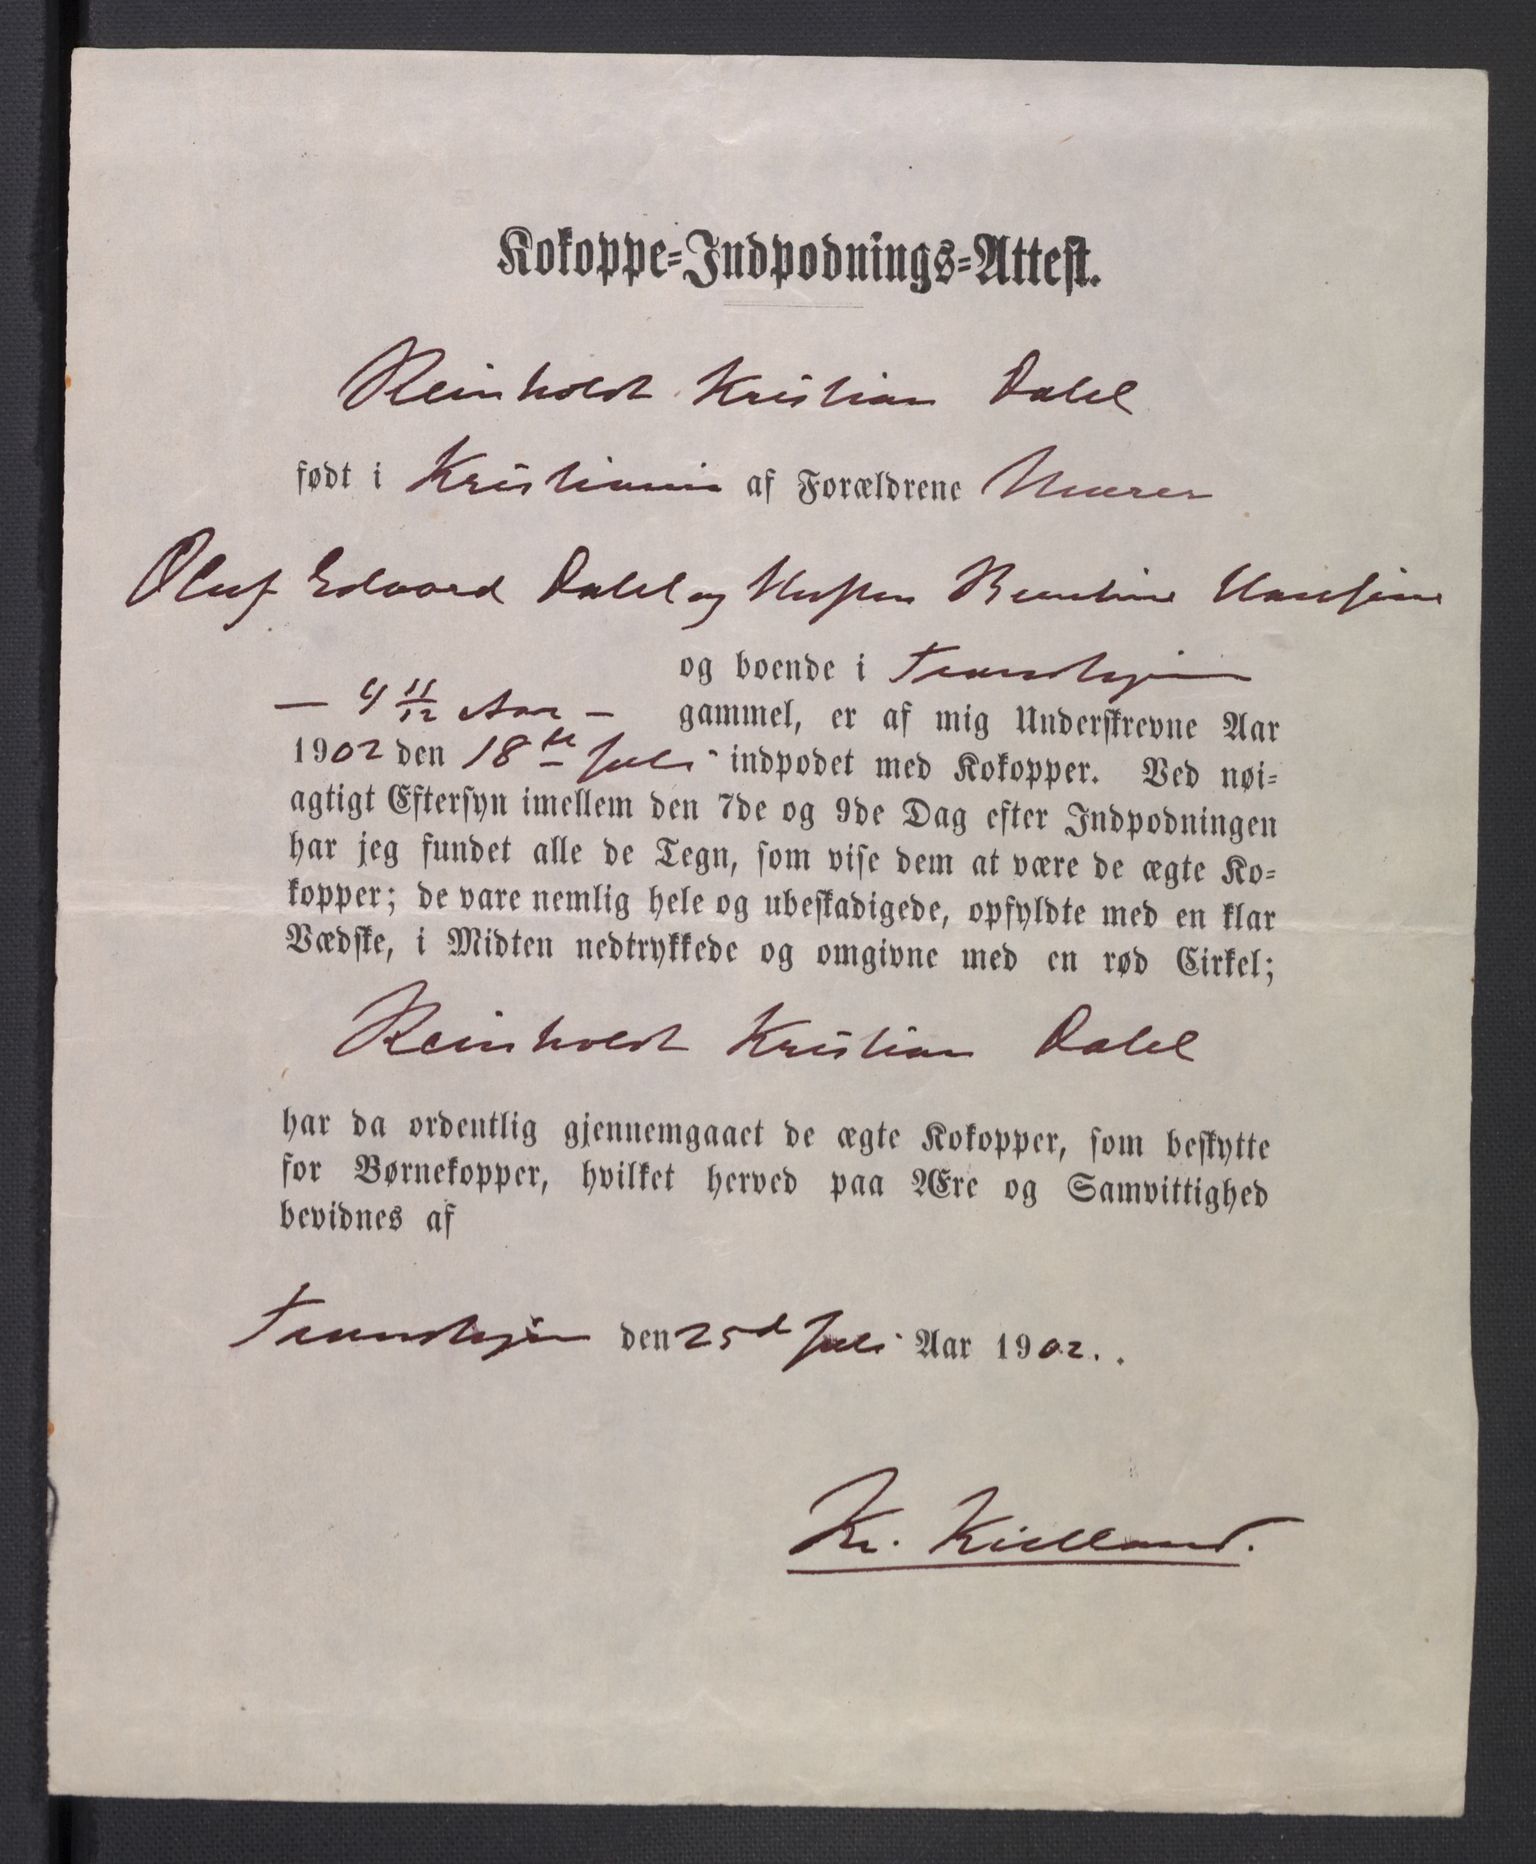 Kokoppe-Indpodnings-Attest.
Reinholdt Kristian Dahl
født i Kristiania af Forældrene Murer
Oluf Edvard Dahl og Hustru Berntine Hansine
og boende i Trondhjem
— 4 11/12 Aar — gammel, er af mig Underskrevne Aar
1902 den 18de Juli indpodet med Kokopper. Ved nøi-
agtigt Eftersyn imellem den 7de og 9de Dag efter Indpodningen
har jeg fundet alle de Tegn, som vise dem at være de ægte Ko-
kopper; de vare nemlig hele og ubeskadigede, opfyldte med en klar
Vædske, i Midten nedtrykkede og omgivne med en rød Cirkel;
Reinholdt Kristian Dahl
har da ordentlig gjennemgaaet de ægte Kokopper, som beskytte
for Børnekopper, hvilket herved paa Ære og Samvittighed
bevidnes af
Trondhjem den 25d Juli Aar 1902.
Kr. Kielland.